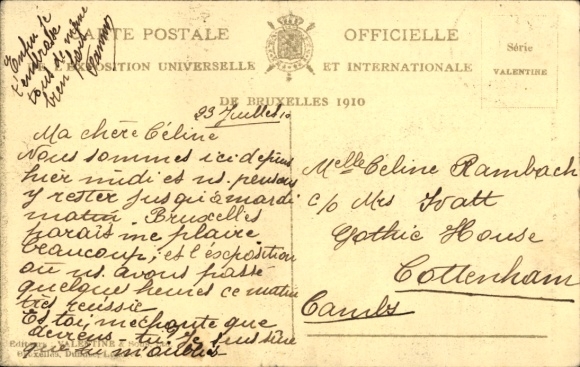 CARTE POSTALE OFFICIELLE
EXPOSITION UNIVERSELLE ET INTERNATIONALE
DE BRUXELLES 1910
Série
VALENTINE
Enfin je
t'embrasse
tous de même
bien fort
23 Juillet 10
Ma chère Céline
Nous sommes ici depuis
hier midi et ns. pensons
y rester jusqu'à mardi
matin. Bruxelles
paraît me plaire
beaucoup; et l'éxposition
où ns. avons passé
quelques heures ce matin
très réussie
Es toi méchante que
deviens tu? Je suis sûre
que tu m'oublies
Melle Céline Rambach
c/o Mrs Ivatt
Gothic House
Cottenham
Cambs
Editeurs VALENTINE &
Bruxelles, Dundee,